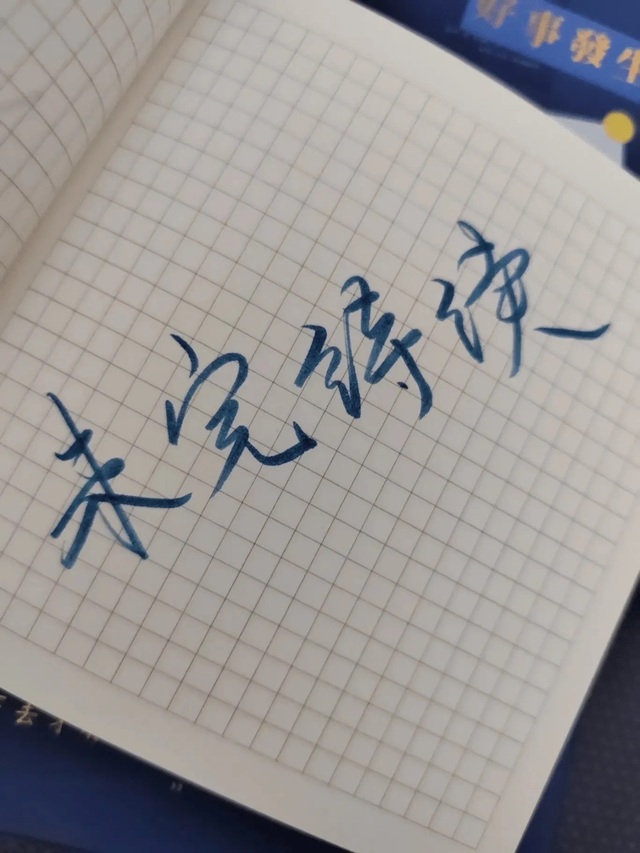 好事發生
未完待续